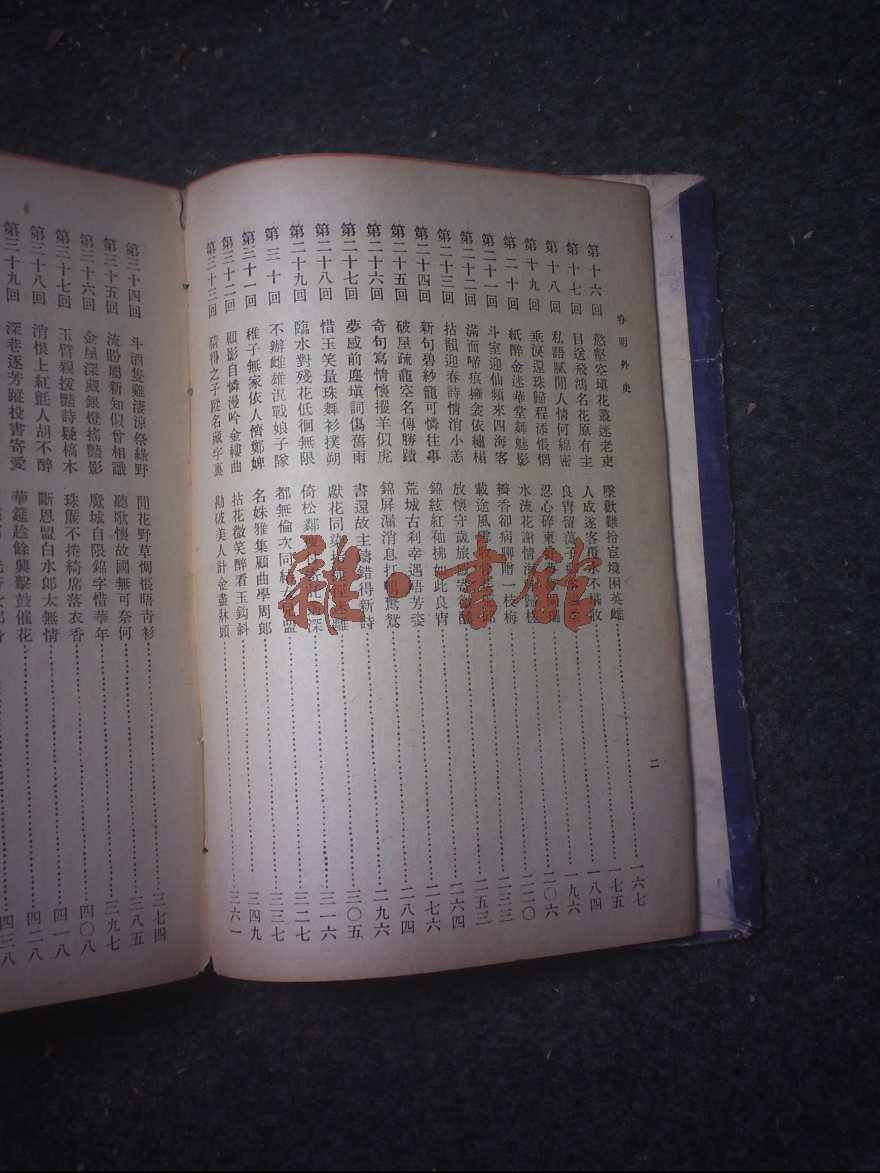 春明外史
二
第十六回 慾壑空填花叢迷老吏 墜歡難拾宦境困英雌 一六七
第十七回 目送飛鴻名花原有主 人成逐客覆水不堪收 一七五
第十八回 私語膩聞人情何綿密 良宵留 一八四
第十九回 垂淚還珠歸程添悵惘 忍心碎柬 一九六
第二十回 紙醉金迷華堂舞魅影 水流花謝情 二〇六
第二十一回 斗室迎仙頻來四海客 瓣香卻病聊贈一枝梅 二二〇
第二十二回 滿面啼痕擁衾依繡榻 載途風雪 二三三
第二十三回 拈韻迎春詩情消小恙 放懷守歲旅 二五三
第二十四回 新句碧紗籠可憐往事 錦絃紅袖拂如此良宵 二六四
第二十五回 破屋疏龕空名傳勝蹟 荒城古刹幸遇晤芳姿 二七六
第二十六回 奇句寫情懷攫羊似虎 錦屏漏消息打鴨驚鴛 二八四
第二十七回 夢感前塵填詞傷舊雨 書還故主鑄錯得新詩 二九六
第二十八回 惜玉笑量珠舞衫撲朔 獻花同 三〇五
第二十九回 臨水對殘花低徊無限 倚松鄰 三一六
第三十回 不辦雌雄混戰娘子隊 都無倫次同 三二七
第三十一回 稚子無家依人儕鄭婢 名姝雅集顧曲學周郎 三三七
第三十二回 顧影自憐漫吟金縷曲 拈花微笑醉看玉鈎斜 三四九
第三十三回 猜得之子蹤名藏字裏 勘破美人計金盡牀頭 三六一
第三十四回 斗酒隻雞淒涼祭綠野 閒花野草惆悵晤青衫 三七四
第三十五回 流盼屬新知似曾相識 聽歌懷故國無可奈何 三八五
第三十六回 金屋深藏銀燈搖豔影 魔城自限錦字惜華年 三九七
第三十七回 玉臂親援豔詩疑槁木 珠簾不捲綺席落衣香 四〇八
第三十八回 消恨上紅氈人胡不醉 斷恩盟白水郎太無情 四一八
第三十九回 深巷逐芳蹤投書寄愛 華筵趁餘興擊鼓催花 四二八
四三八
雜·書館